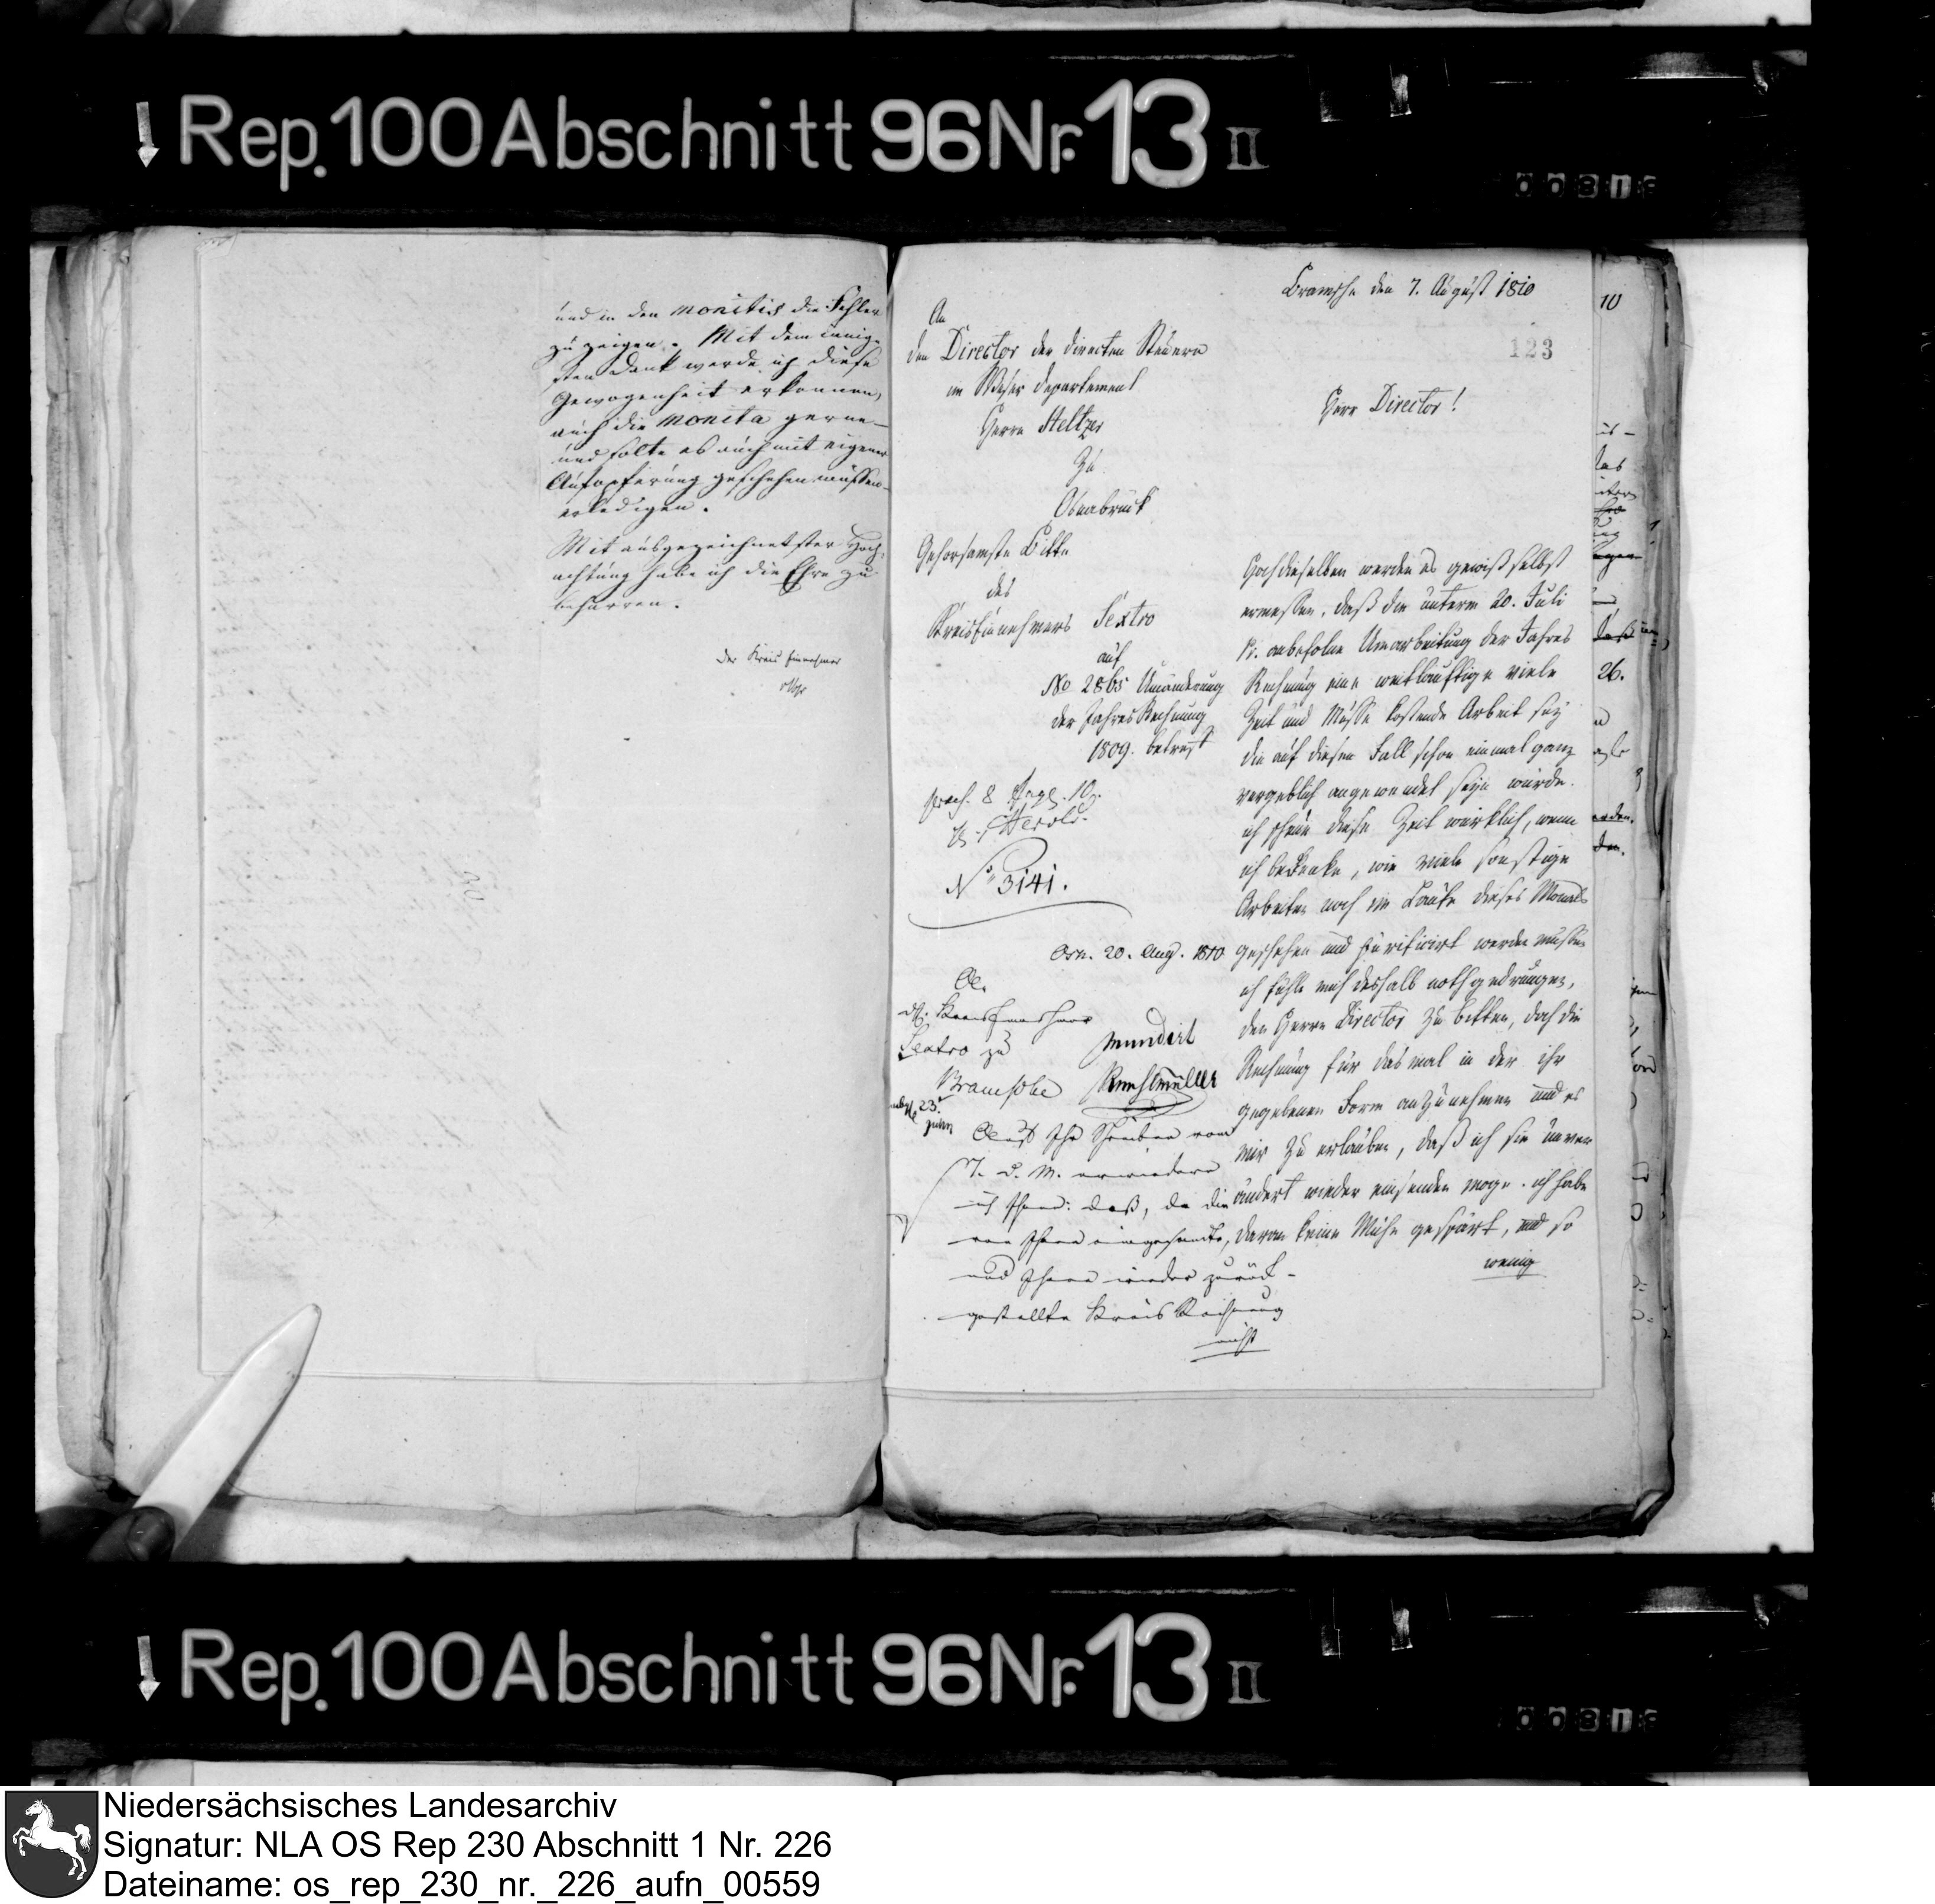 Rep. 100 Abschnitt 96 Nr. 13 II
und in den monitis die Fehler
zu zeigen. Mit dem innig-
sten Dank werde ich diese
Gewogenheit erkennen,
auch die monita gerne –
und solte es auch mit eigener
Aufopferung geschehen müssen –
erledigen.
Mit ausgezeichnetster Hoch-
achtung habe ich die Ehre zu
beharren.
Der Kreis Einnehmer
Bramsche den 7. August 1810
123
An
den Director der directen Steuern
im Weser Departement
Herrn Steltzer
zu
Osnabrück
Gehorsamste Bitte
des
Kreiseinnehmers Sextro
auf
No 2865 Umänderung
der Jahres Rechnung
1809. betreff
praes. 8 Aug. 10.
Herold.
No 3141.
Herr Director!
Hochdieselben werden es gewiß selbst
ermessen, daß die unterm 20. Juli
anbefolne Umarbeitung der Jahres
Rechnung eine weitläuftige viele
Zeit und Müsse kostende Arbeit sey
die auf diesen Fall schon einmal ganz
vergeblich angewendet seyn würde.
ich scheue diese Zeit würklich, wenn
ich bedenke, wie viele sonstige
Arbeiten noch im Laufe dieses Monats
geschehen und purificirt werden müssen
ich fühle mich deshalb nothgedrungen,
den Herrn Director zu bitten, doch die
Rechnung für das mal in der ihr
gegebenen Form anzunehmen und es
mir zu erlauben, daß ich sie unver
ändert wieder einsenden möge. ich habe
daran keine Mühe gespart, und so
wenig
Osn. 20. Aug. 1810
Sextro zu
Bramsche
mundirt
Ruehlmüller
Auf Ihr Schreiben vom
7. d. M. erwiedere
ich Ihnen: daß, da die
von Ihnen eingesandte,
und Ihnen wieder zurück-
gestellte Kreis Rechnung
nicht
10
26.
Rep. 100 Abschnitt 96 Nr. 13 II
Niedersächsisches Landesarchiv
Signatur: NLA OS Rep 230 Abschnitt 1 Nr. 226
Dateiname: os_rep_230_nr._226_aufn_00559